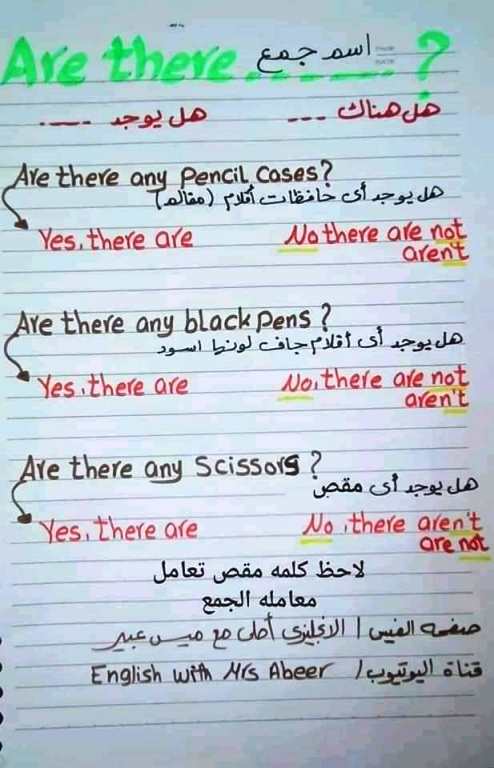 Are there اسم جمع ........ ?
هل هناك --- هل يوجد ----
Are there any pencil cases?
هل يوجد أى حافظات أقلام (مقالم)
Yes, there are No there are not
aren't
Are there any black pens ?
هل يوجد أى أقلام جاف لونها اسود
Yes, there are No, there are not
aren't
Are there any scissors ?
هل يوجد أى مقص
Yes, there are No, there aren't
are not
لاحظ كلمه مقص تعامل
معامله الجمع
صفحه الفيس / الانجليزى أحلى مع ميس عبير
قناة اليوتيوب / English with Mrs Abeer